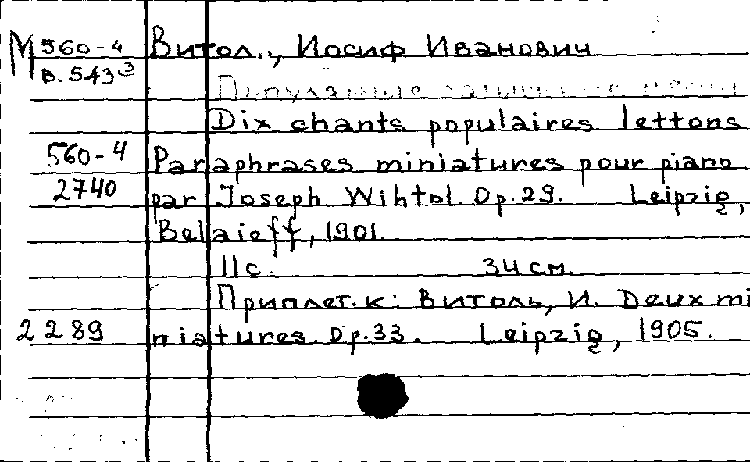 М 560-4 Витол., Иосиф Иванович
В.543³
Dix chants populaires lettons
560-4 Paraphrases miniatures pour piano
2740 par Joseph Wihtol Op.29. Leipzig,
Belaieff, 1901.
11с. 34 см.
Приплет. к: Витоль, И. Deux mi
2289 niatures Op.33. Leipzig, 1905.